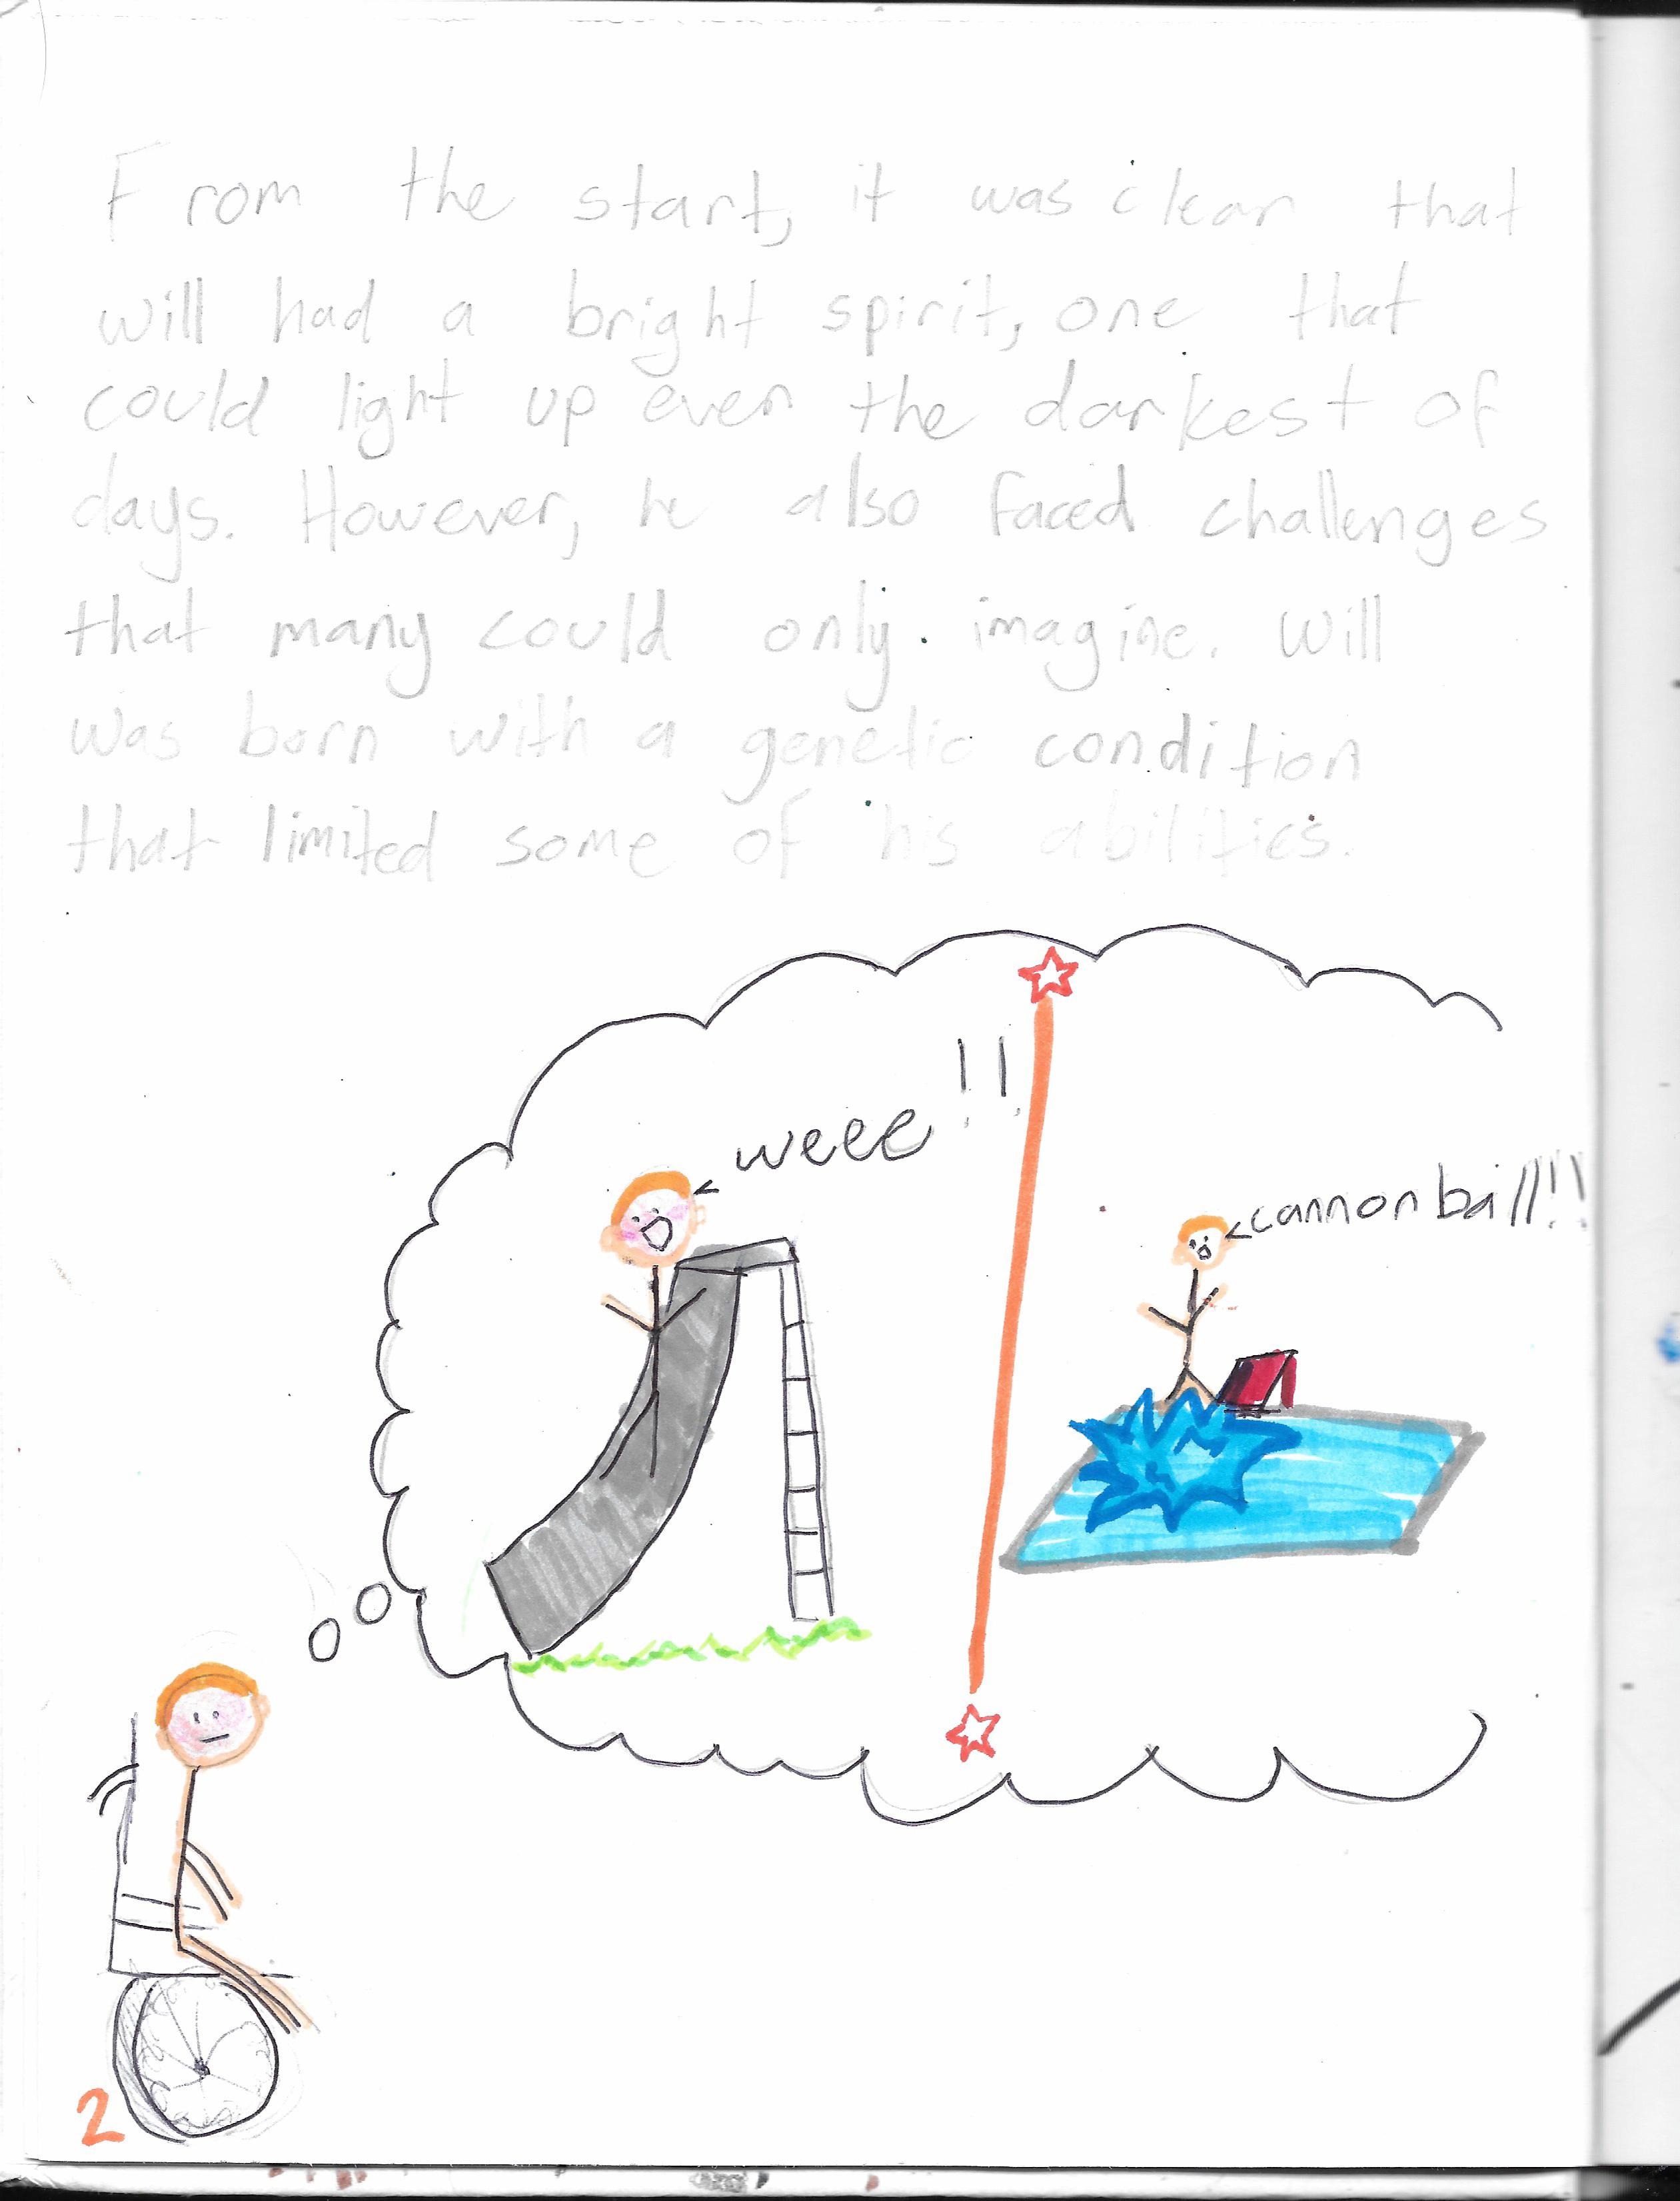 From the start, it was clear that
will had a bright spirit, one that
could light up even the darkest of
days. However, he also faced challenges
that many could only imagine. Will
was born with a genetic condition
that limited some of his abilities.
weee!!
cannonball!!
2